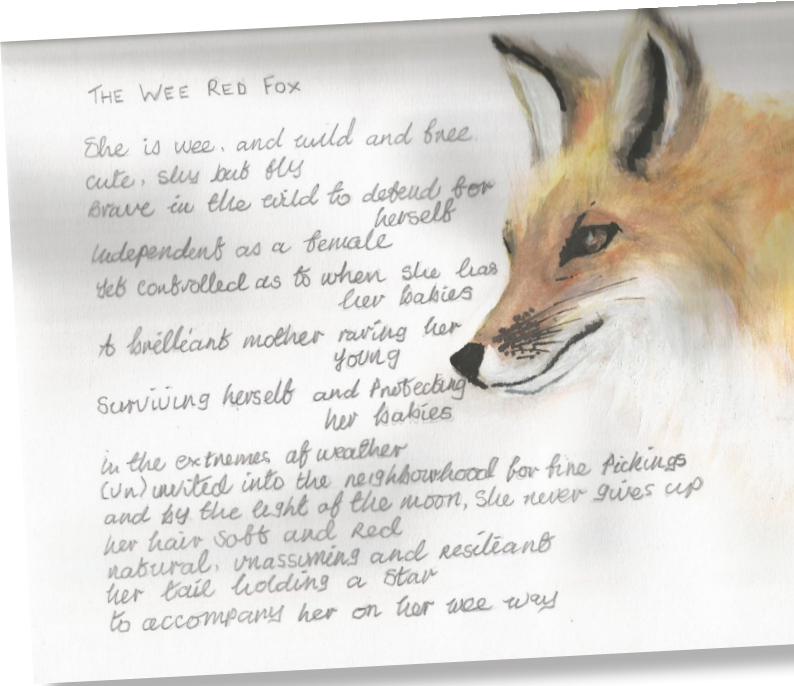 THE WEE RED FOX
She is wee, and wild and free
cute, sly but fly
Brave in the wild to defend for
herself
Independent as a female
yet controlled as to when she has
her babies
A brilleant mother raring her
young
Surviving herself and Protecting
her babies
in the extremes of weather
(un)invited into the neighbourhood for fine Pickings
and by the light of the moon, she never gives up
her hair soft and Red
natural, unassuming and resileant
her tail holding a star
to accompany her on her wee way